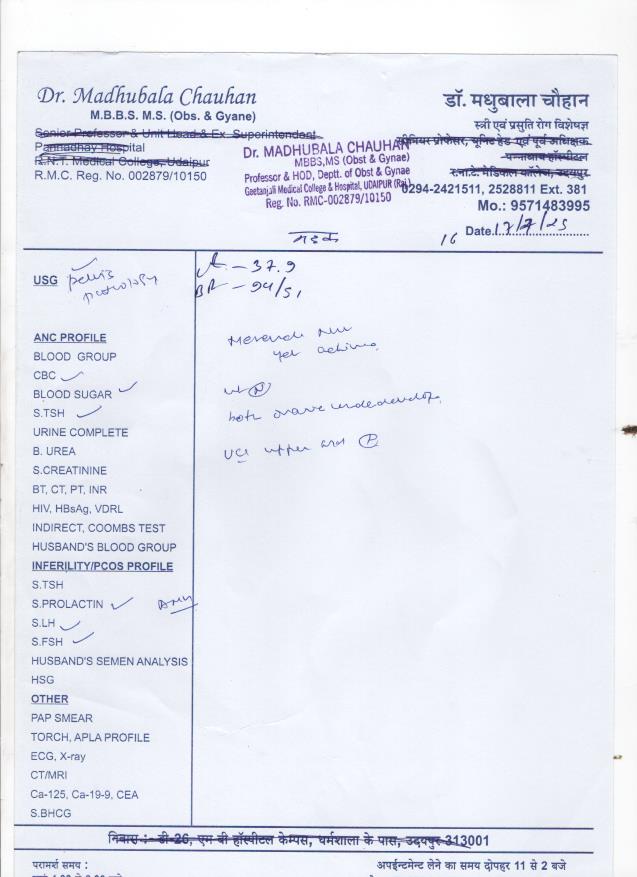 Dr. Madhubala Chauhan
M.B.B.S. M.S. (Obs. & Gyane)
Senior Professor & Unit Head & Ex. Superintendent
Pannadhay Hospital
R.N.T. Medical College, Udaipur
R.M.C. Reg. No. 002879/10150
Dr. MADHUBALA CHAUHAN
MBBS,MS (Obst & Gynae)
Professor & HOD, Deptt. of Obst & Gynae
Geetanjali Medical College & Hospital, UDAIPUR (Raj.)
Reg. No. RMC-002879/10150
डॉ. मधुबाला चौहान
स्त्री एवं प्रसुति रोग विशेषज्ञ
सीनियर प्रोफेसर, यूनिट हेड एवं पूर्व अधीक्षक
पन्नाधाय हॉस्पीटल
र.ना.टे. मेडिकल कॉलेज, उदयपुर
0294-2421511, 2528811 Ext. 381
Mo.: 9571483995
16 Date. 17/7/25
USG pelvis
- 37.9
BP - 94/51
ANC PROFILE
BLOOD GROUP
CBC
BLOOD SUGAR
S.TSH
URINE COMPLETE
B. UREA
S.CREATININE
BT, CT, PT, INR
HIV, HBsAg, VDRL
INDIRECT, COOMBS TEST
HUSBAND'S BLOOD GROUP
INFERILITY/PCOS PROFILE
S.TSH
S.PROLACTIN AMH
S.LH
S.FSH
HUSBAND'S SEMEN ANALYSIS
HSG
OTHER
PAP SMEAR
TORCH, APLA PROFILE
ECG, X-ray
CT/MRI
Ca-125, Ca-19-9, CEA
S.BHCG
yet
both
upper
निवास :- डी-26, एम बी हॉस्पीटल केम्पस, धर्मशाला के पास, उदयपुर-313001
परामर्श समय :
अपईन्टमेन्ट लेने का समय दोपहर 11 से 2 बजे